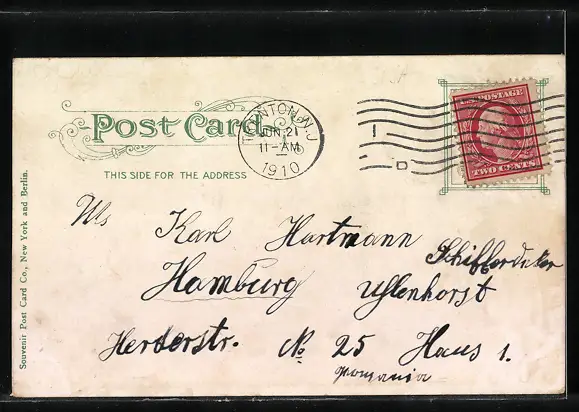 Post Card
THIS SIDE FOR THE ADDRESS
TRENTON, N.J.
JUN 21
11-AM
1910
1
D
U.S. POSTAGE
TWO CENTS
Souvenir Post Card Co., New York and Berlin.
Karl Hartmann
Schifferdecker
Hamburg Uhlenhorst
Herderstr. No 25 Haus 1.
Germania